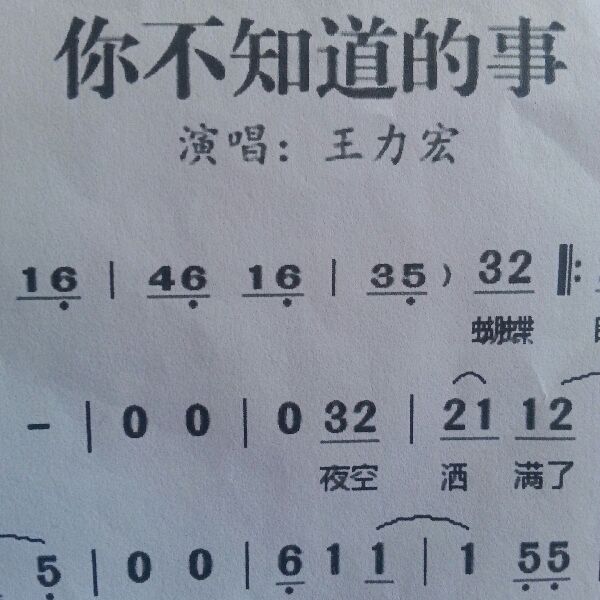 你不知道的事
演唱：王力宏
16 | 46 16 | 35 ) 32 ‖:
蝴蝶
- | 0 0 | 0 32 | 21 12
夜空 洒 满了
5 | 0 0 | 6 1 1 | 1 55